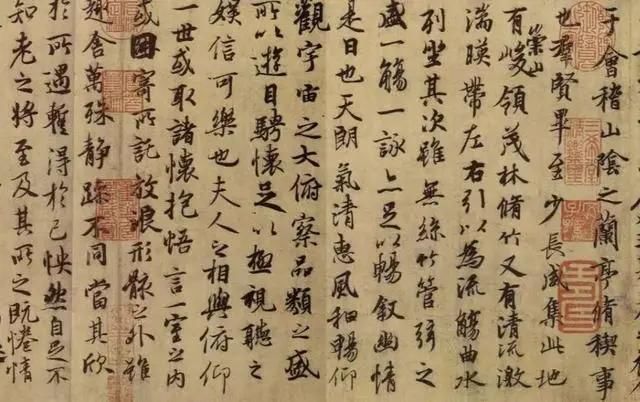 于會稽山陰之蘭亭脩稧事
也羣賢畢至少長咸集此地
有崇山峻領茂林脩竹又有清流激
湍暎帶左右引以為流觴曲水
列坐其次雖無絲竹管弦之
盛一觴一詠亦足以暢叙幽情
是日也天朗氣清惠風和暢仰
觀宇宙之大俯察品類之盛
所以遊目騁懷足以極視聽之
娛信可樂也夫人之相與俯仰
一世或取諸懷抱悟言一室之內
或因寄所託放浪形骸之外雖
趣舍萬殊靜躁不同當其欣
於所遇暫得於己怏然自足不
知老之將至及其所之既惓情